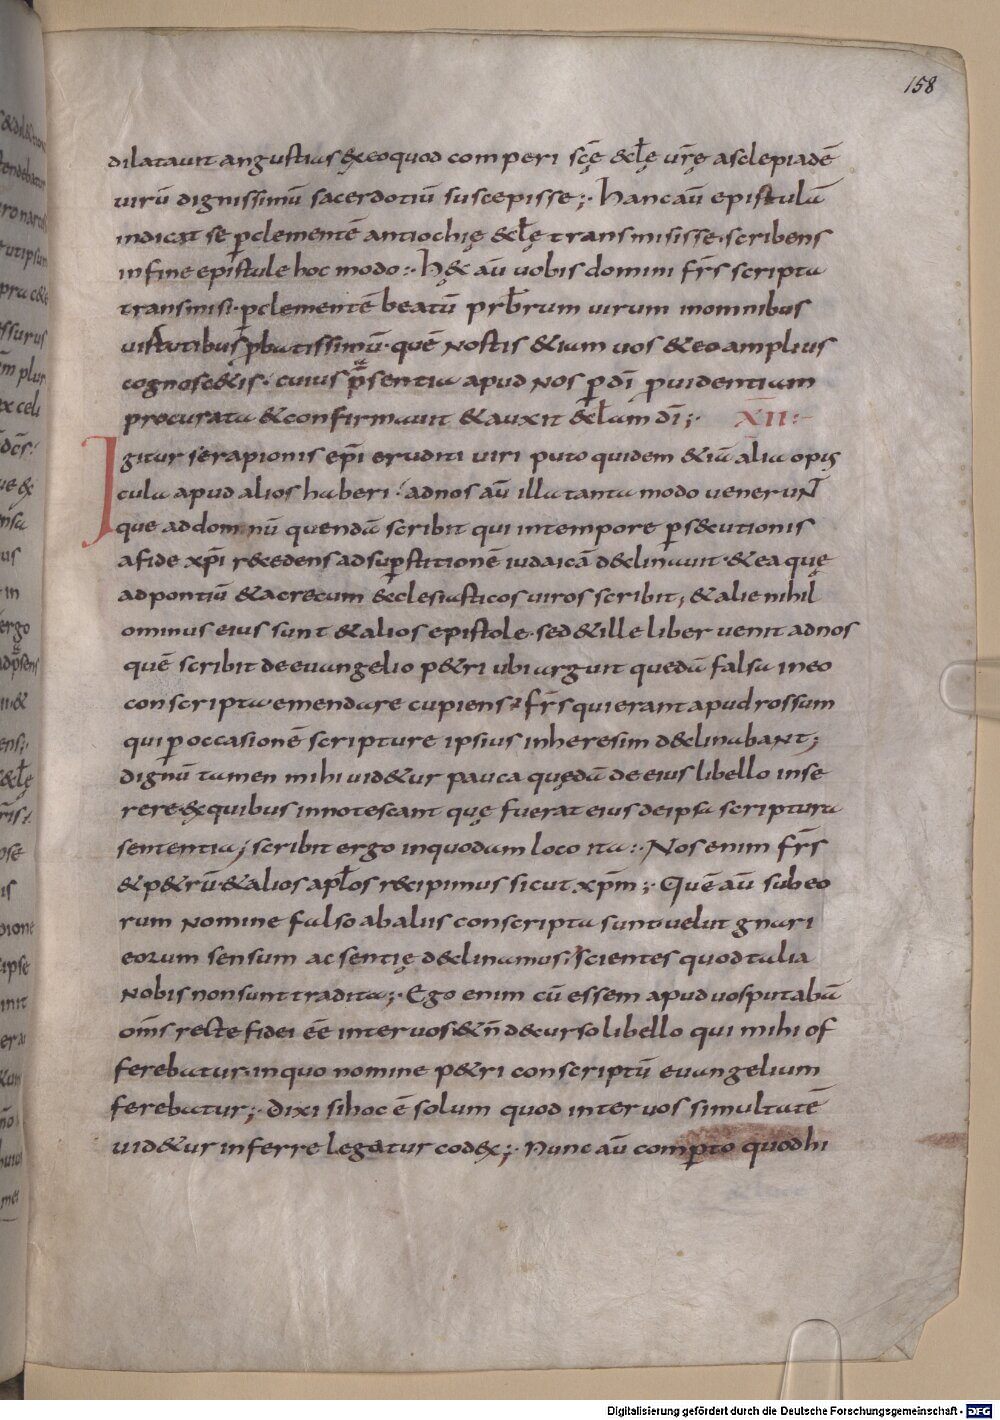 158
dilatauit angustius & eo quod comperi scę̄ &clę̄ urę̄ asclepiadē
uirū dignissimū sacerdotiū suscepisse;· hanc aū epistulā
indicat se p clementē antiochię &clę̄ transmisisse· scribens
in fine epistule hoc modo:· hęc aū uobis domini frs̄ scripta
transmisi· p clementē beatū prb̄rum uirum in omnibus
uirtutibus p̄batissimū· quē nostis &iam uos & eo amplius
cognosc&is· cuius p̄sentia apud nos p dī p̄uidentiam
procurata & confirmauit & auxit &cl̄am dī;· XII:·
Igitur serapionis epī eruditi uiri puto quidem &iā alia opus
cula apud alios haberi· ad nos aū illa tantu modo uenerunt
que ad domninū quendā scribit qui in tempore p̄s&utionis
a fide xp̄i r&edens ad sup̄stitionē iudaicā d&linauit· & ea quę
ad pontiū & acrecum &clesiasticos uiros scribit; & alie nihil
ominus eius sunt & alios epistole· sed & ille liber uenit ad nos
quē scribit de euangelio p&ri ubi arguit quedā falsa in eo
conscripta emendare cupiens· frs̄ qui erant apud rossum
qui p occasionē scripture ipsius in heresim d&linabant;
dignū tamen mihi uid&ur pauca quędā de eius libello inse
rere· &quibus innotescant quę fuerat eius de ipsa scriptura
sententia; scribit ergo in quodam loco ita:· Nos enim frs̄
& p&rū & alios aplōs r&ipimus sicut xp̄m;· Quē aū sub eo
rum nomine falso ab aliis conscripta sunt uelut gnari
eorum sensum ac sentię d&linamus· scientes quod talia
nobis non sunt tradita;· Ego enim cū essem apud uos putabā
om̄s recte fidei ēē inter uos· & n̄ d&urso libello qui mihi of
ferebatur· in quo nomine p&ri conscriptū euangelium
ferebatur;· dixi si hoc ē solum quod inter uos simultatē
uid&ur inferre legatur codex;· Nunc aū comp̄to quod hi
Digitalisierung gefördert durch die Deutsche Forschungsgemeinschaft - DFG